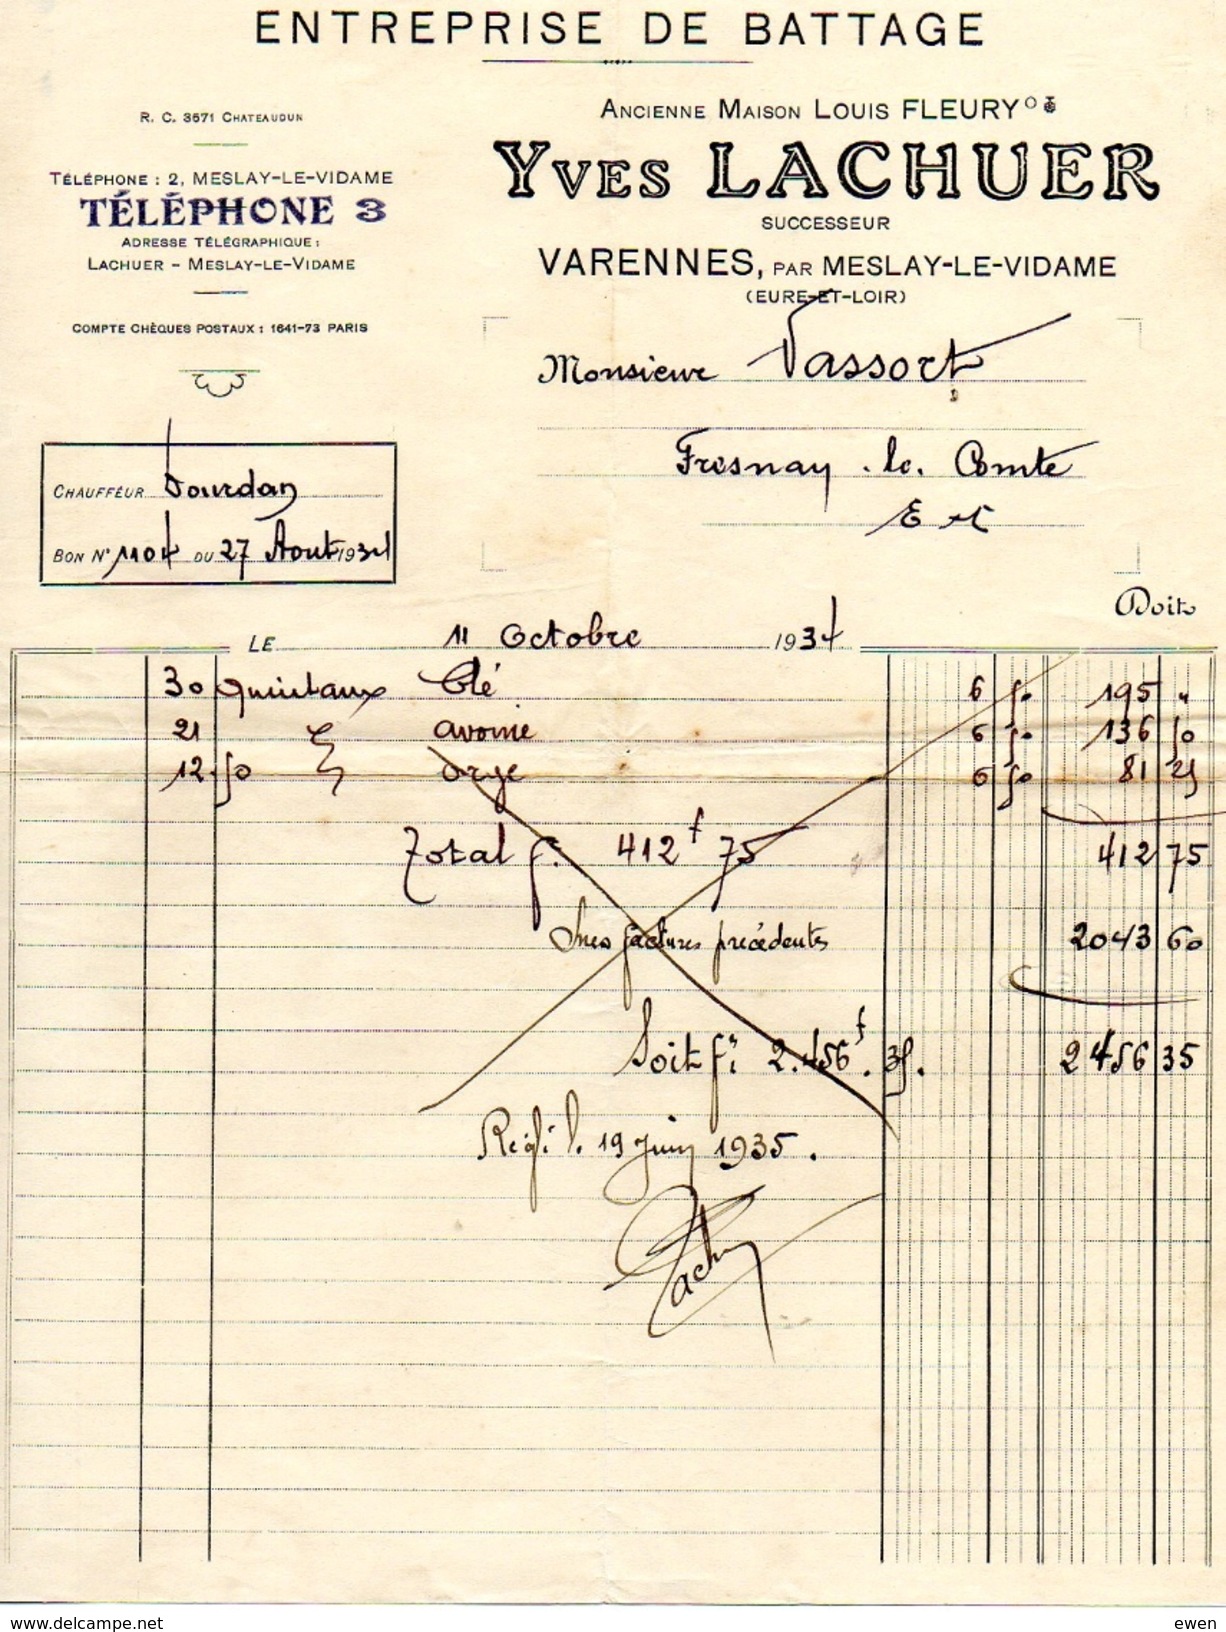 ENTREPRISE DE BATTAGE
R. C. 3671 CHATEAUDUN
TÉLÉPHONE : 2, MESLAY-LE-VIDAME
TÉLÉPHONE 3
ADRESSE TÉLÉGRAPHIQUE :
LACHUER - MESLAY-LE-VIDAME
COMPTE CHÈQUES POSTAUX : 1641-73 PARIS
ANCIENNE MAISON LOUIS FLEURY
YVES LACHUER
SUCCESSEUR
VARENNES, PAR MESLAY-LE-VIDAME
(EURE-ET-LOIR)
Monsieur Vassort
Fresnay le Comte
E et L
CHAUFFEUR Jourdan
BON N° 1104 DU 27 Aout 1934
Doit
LE 11 Octobre 1934
30 quintaux Blé 6 50 195 "
21 avoine 6 50 136 50
12.50 orge 6 50 81 25
Total f. 412f 75 412 75
factures précédentes 2043 60
Soit f: 2.456f.35. 2456 35
Réglé le 19 Juin 1935.
Lachuer
www.delcampe.net
ewen